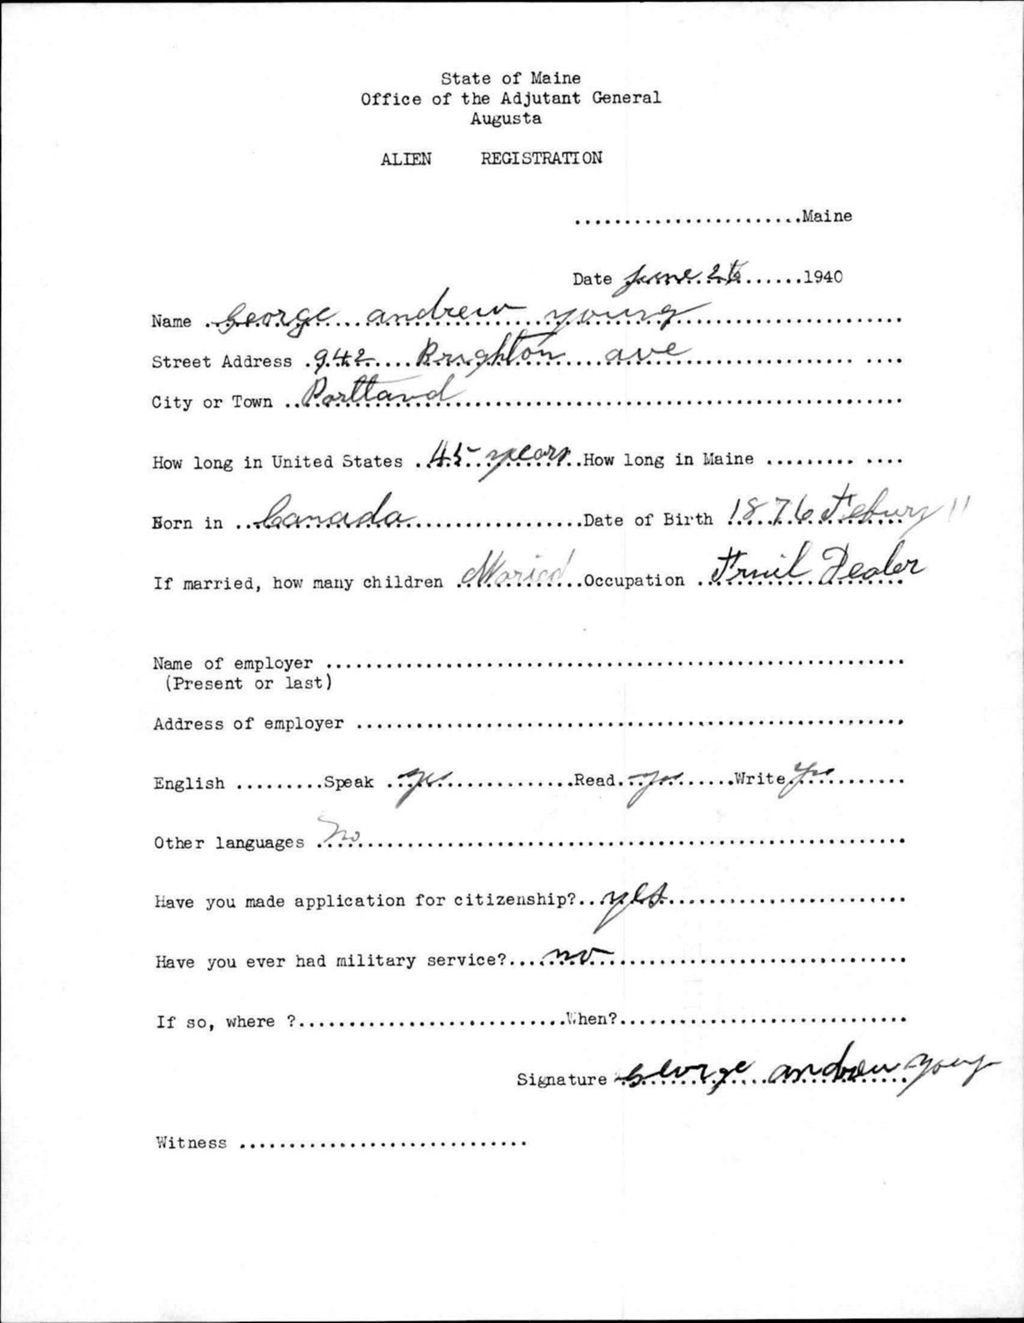 State of Maine
Office of the Adjutant General
Augusta
ALIEN REGISTRATION
.......................Maine
Date June 26 ......1940
Name George andrew young
Street Address 942 Brighton ave
City or Town Portland
How long in United States 45 years How long in Maine ......... ....
Born in Canada Date of Birth 1876 Febury 11
If married, how many children Maried Occupation Fruit Dealer
Name of employer ..........................................................
(Present or last)
Address of employer .......................................................
English .........Speak yes Read yes Write yes
Other languages no
Have you made application for citizenship? yes
Have you ever had military service? no
If so, where ?...........................When?.............................
Signature George andrew young
Witness .............................